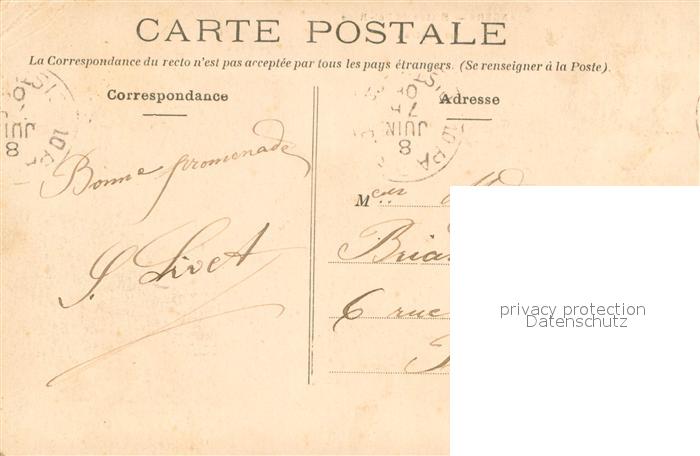 CARTE POSTALE
La Correspondance du recto n'est pas acceptée par tous les pays étrangers. (Se renseigner à la Poste).
Correspondance
Adresse
8
JUIN
8
JUIN
Bonne promenade
S. Livet
M
6 rue
privacy protection
Datenschutz